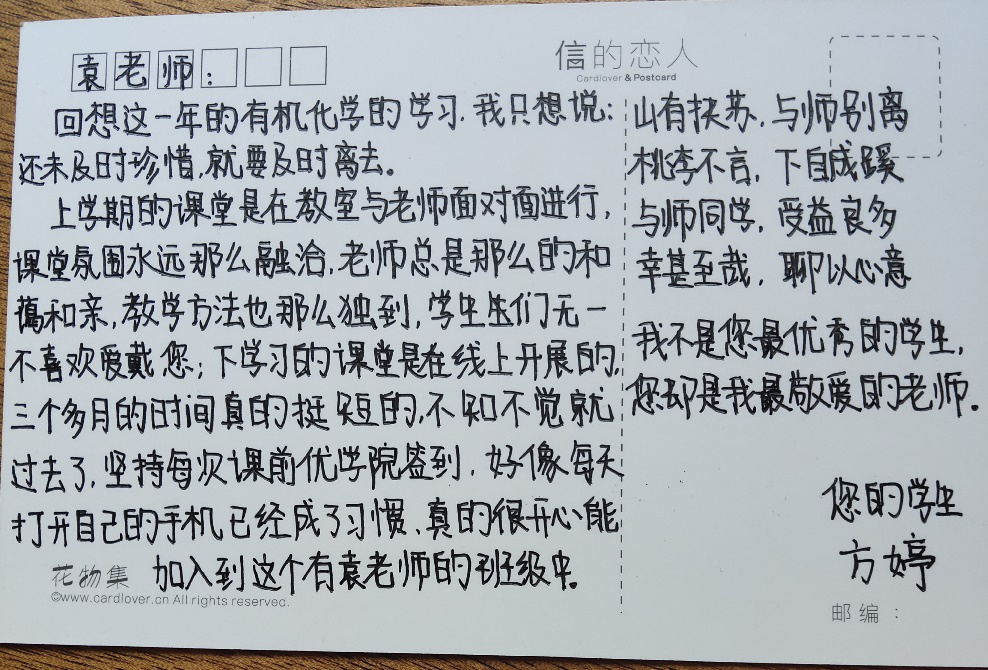 袁老师：
信的恋人
Cardlover & Postcard
回想这一年的有机化学的学习，我只想说：
还未及时珍惜，就要及时离去。
上学期的课堂是在教室与老师面对面进行，
课堂氛围永远那么融洽，老师总是那么的和
蔼和亲，教学方法也那么独到，学生生们无一
不喜欢爱戴您；下学习的课堂是在线上开展的，
三个多月的时间真的挺短的，不知不觉就
过去了，坚持每次课前优学院签到，好像每天
打开自己的手机已经成了习惯、真的很开心能
加入到这个有袁老师的班级中。
花物集
©www.cardlover.cn All rights reserved.
山有扶苏，与师别离
桃李不言，下自成蹊
与师同学，受益良多
幸甚至哉，聊以心意
我不是您最优秀的学生，
您却是我最敬爱的老师。
您的学生
方婷
邮编：